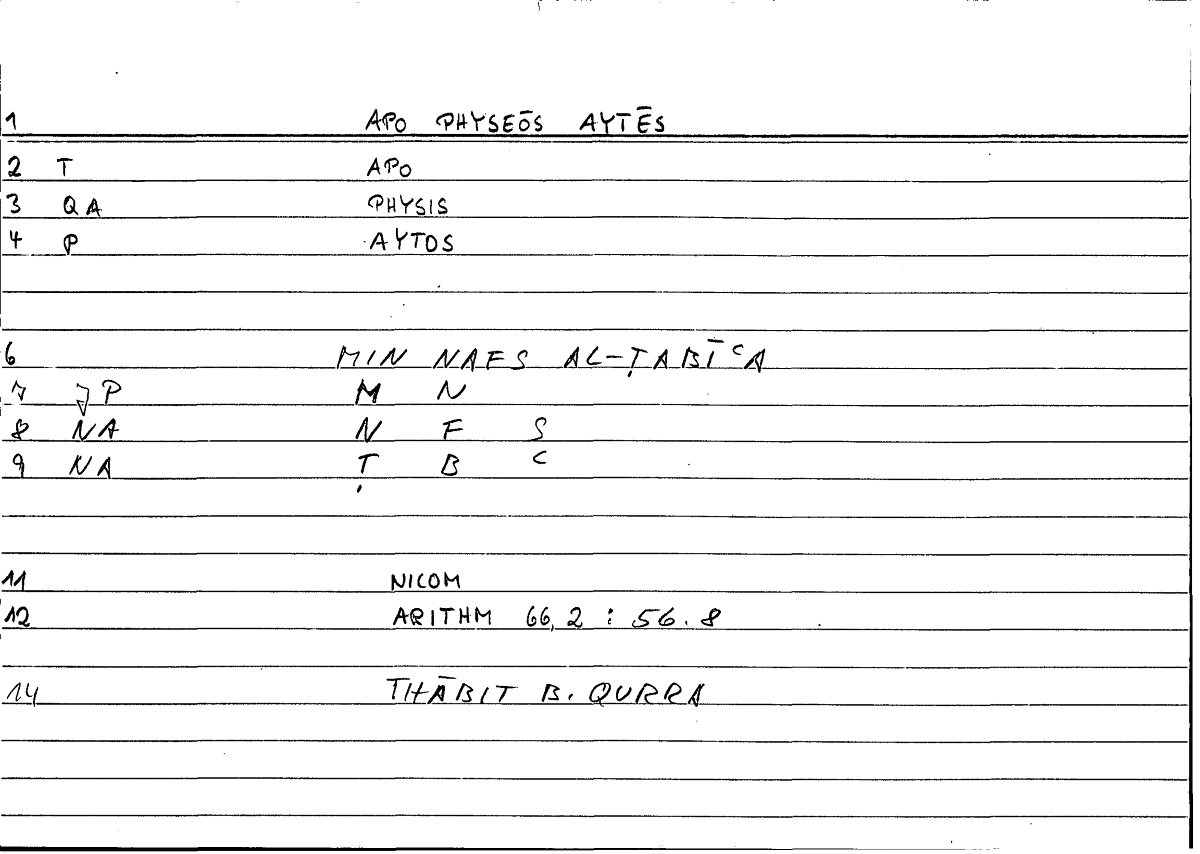 1 APO PHYSEŌS AYTĒS
2 T APO
3 QA PHYSIS
4 P AYTOS
6 MIN NAFS AL-ṬABĪʿA
7 JP M N
8 NA N F S
9 NA Ṭ B ʿ
11 NICOM
12 ARITHM 66,2 : 56.8
14 THĀBIT B. QURRA